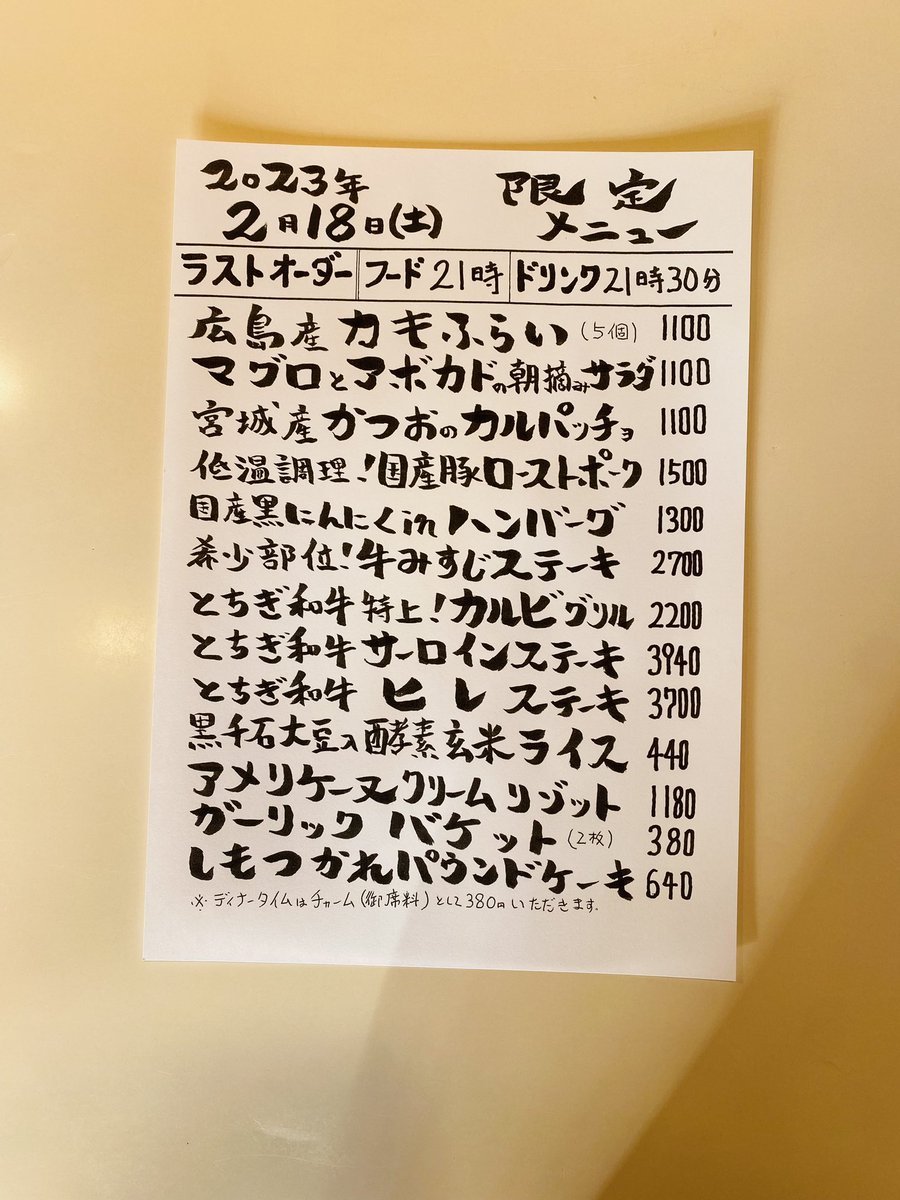 2023年 限定
2月18日(土) メニュー
ラストオーダー フード21時 ドリンク21時30分
広島産カキふらい(5個) 1100
マグロとアボカドの朝摘みサラダ 1100
宮城産かつおのカルパッチョ 1100
低温調理!国産豚ローストポーク 1500
国産黒にんにくinハンバーグ 1300
希少部位!牛みすじステーキ 2700
とちぎ和牛特上!カルビグリル 2200
とちぎ和牛サーロインステーキ 3940
とちぎ和牛ヒレステーキ 3700
黒千石大豆入酵素玄米ライス 440
アメリケーヌクリームリゾット 1180
ガーリックバケット(2枚) 380
しもつかれパウンドケーキ 640
※ディナータイムはチャーム(御席料)として380円いただきます.